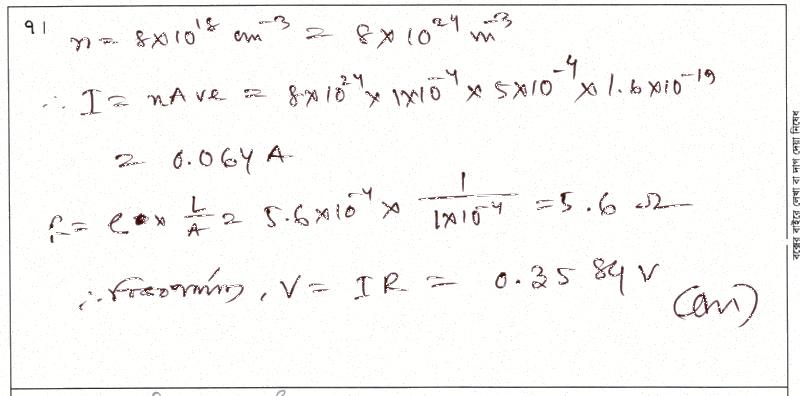 91 n = 8×10¹⁸ cm⁻³ = 8×10²⁴ m⁻³
∴ I = nAve = 8×10²⁴ × 1×10⁻⁴ × 5×10⁻⁴ × 1.6×10⁻¹⁹
= 0.064 A
R = ρ × L/A = 5.6×10⁻⁴ × 1/1×10⁻⁴ = 5.6 Ω
∴ বিভবপার্থক্য, V = IR = 0.3584 V
(Ans)
বক্সের বাইরে লেখা বা দাগ দেয়া নিষেধ